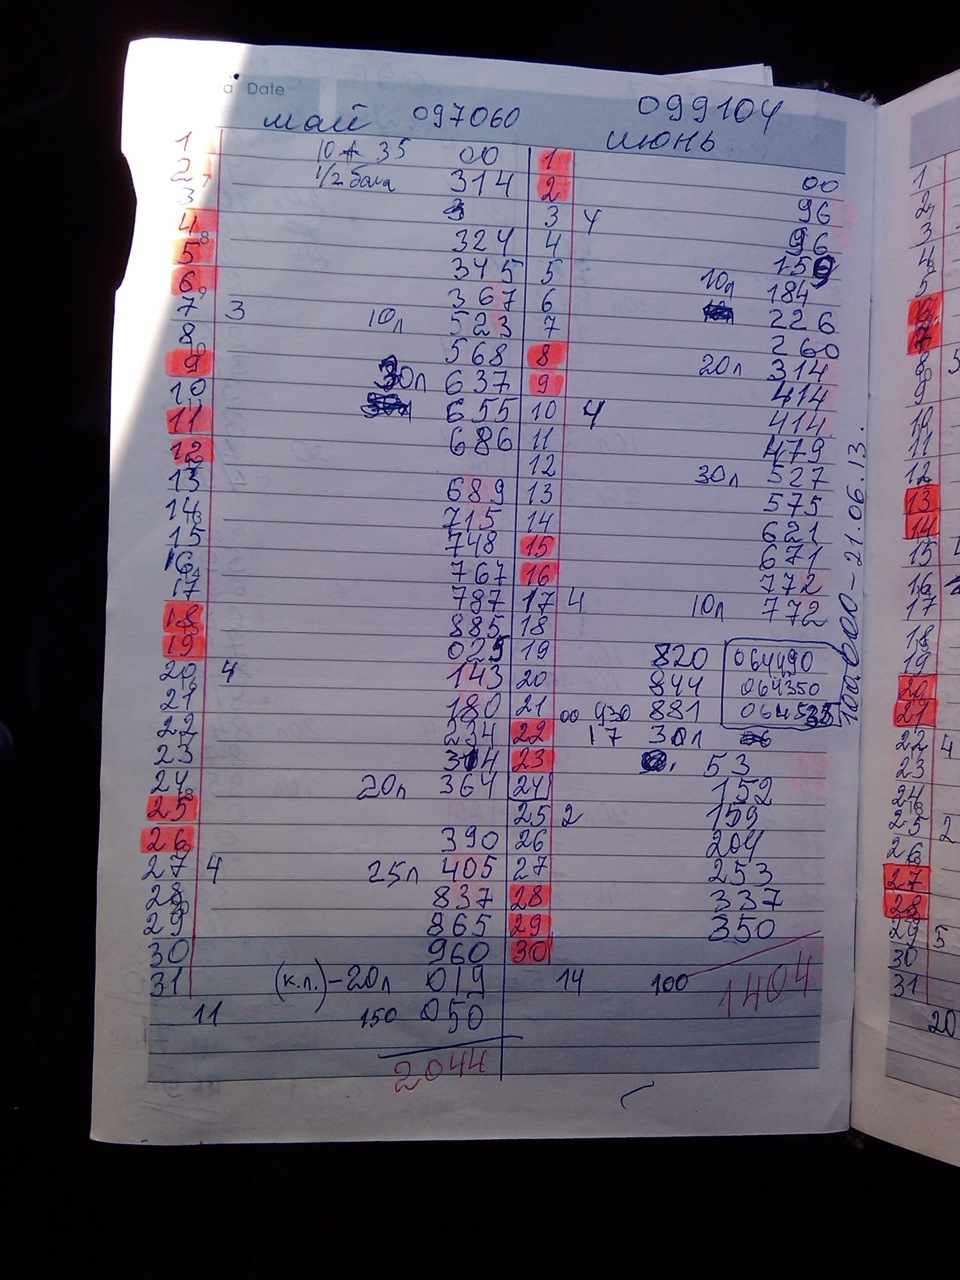 Date
май 097060
099104
июнь
1 10 35 00 1
2 1/2 бака 314 2 00
3 3 4 96
4 324 4 96
5 345 5 159
6 367 6 10л 184
7 3 10л 523 7 226
8 568 8 260
9 30л 637 9 20л 314
10 655 10 4 414
11 686 11 414
12 12 479
13 689 13 30л 527
14 715 14 575
15 748 15 621
16 767 16 671
17 787 17 4 772
18 885 18 10л 772
19 029 19 820 064490
20 4 143 20 844 064350
21 180 21 00 930 881
22 234 22 17 30л
23 304 23 53
24 20л 364 24 152
25 25 2 159
26 390 26 204
27 4 25л 405 27 253
28 837 28 337
29 865 29 350
30 960 30
31 (к.л.)-20л 019 14 100 1404
11 150 050
2044
100.000 - 21.06.13.
1
2
3
4
5
6
7
8
9
10
11
12
13
14
15
16
17
18
19
20
21
22 4
23
24
25 2
26
27
28
29 5
30
31
20